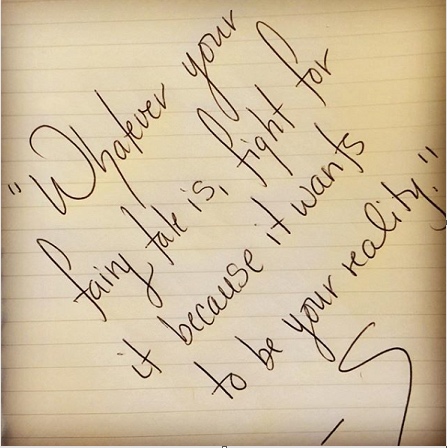 "Whatever your
fairy tale is, fight for
it because it wants
to be your reality."